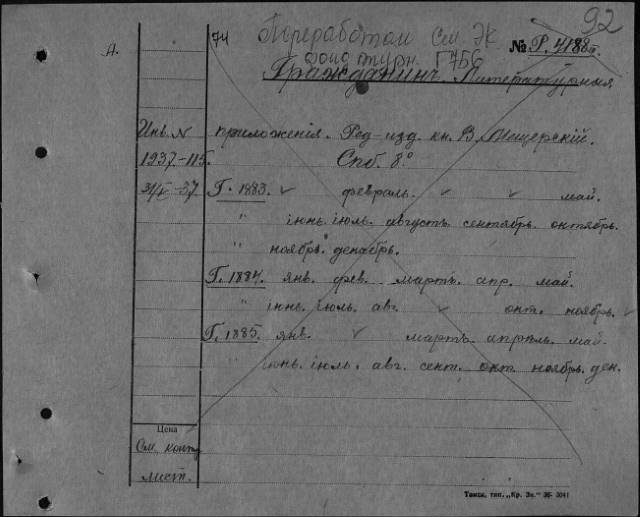 92
74 Переработан См ЭК
№ Р. 4188
А. фонд журн. Г756
Гражданинъ. Литературныя
Инв. N приложенія. Ред-изд. кн. В. Мещерскій.
1937.-115. Спб. 8°
-37. Г. 1883. ✓ февраль. ✓ ✓ май.
" іюнь. іюль. августъ. сентябрь. октябрь.
" ноябрь. декабрь.
Г. 1884. янв. фев. мартъ. апр. май.
" іюнь. іюль. авг. ✓ окт. ноябрь. ✓
Г. 1885. янв. ✓ мартъ. апрѣль. май.
" іюнь. іюль. авг. сент. окт. ноябрь. дек.
Цена
См. конт.
лист.
Тамб. тип. „Кр. Зн.“ 36- 3041